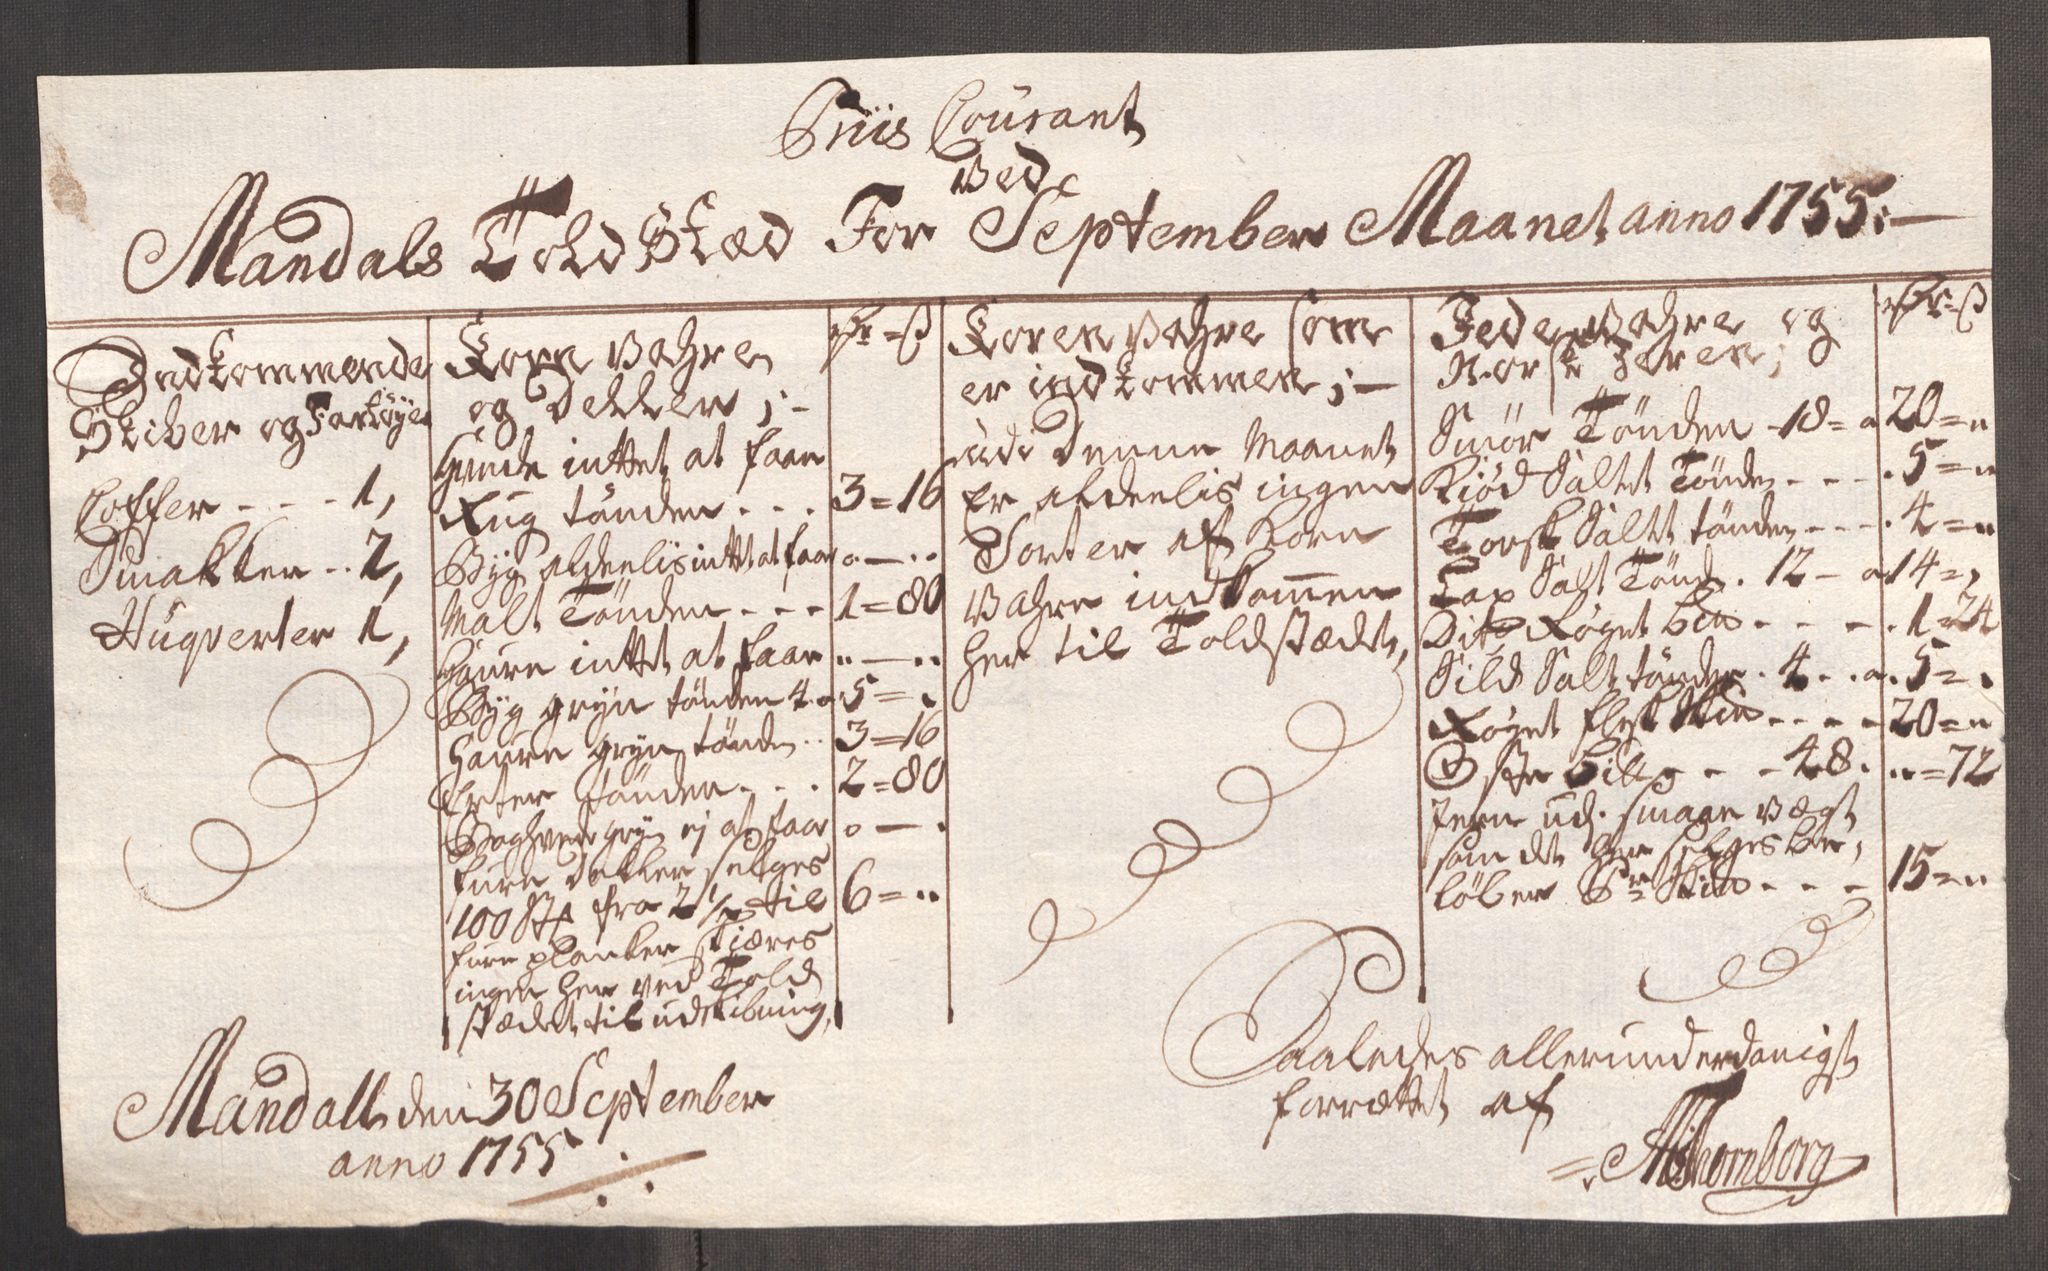 Priis Courant
Ved
Mandals Told Stæd For September Maanet anno 1755:
Indkommende
Skiber og Fartøye
Coffer - - - 1,
Smakker - - 2,
Huqverter 1,
Korn Vahre
og Deller ;
Hvede inttet at faae
Rug tønden - - -
Byg aldeelis inttet at faae
Malt Tönden - - -
Haure inttet at faae
Byg gryn tønden 4 - a
Haure gryn tønde - -
Erter tönden - - -
Boghvede gryn ej at faae
furu Dæller selges
100 St fra 2 1/2 til
furu planker skiæres
ingen her ved Told
stædet til udskibning,
Rdr = ß
3 = 16
1 = 80
5 =
3 = 16
2 = 80
6 = "
Koren Vahre som
er indkommen ;
udi Denne Maanet
Er aldeelis ingen
Sorter af Korn
Vahre indkommen
her til Toldstædet,
Fede Vahre og
Norsk Jeren ;
Smör Tönden - 18 = a
Kiød Saltet Tönden - - -
Torsk Saltet tönden - - -
Lax Salt Tönd - 12 - a
Dito Røget - - - -
Sild Salt tönden - 4 - - a
Røget flesk - - - -
Oste - - - 48 -
Jern udj smaae Vægt
som det her selges be,
löber - - -
Rdr = ß
20 = "
5 = "
4 = "
14 =
1 = 24
5 =
20 = "
" = 72
15 = "
Mandall den 30 September
anno 1755
Saaledes allerunderdanigst
forrættet af
Thornborg